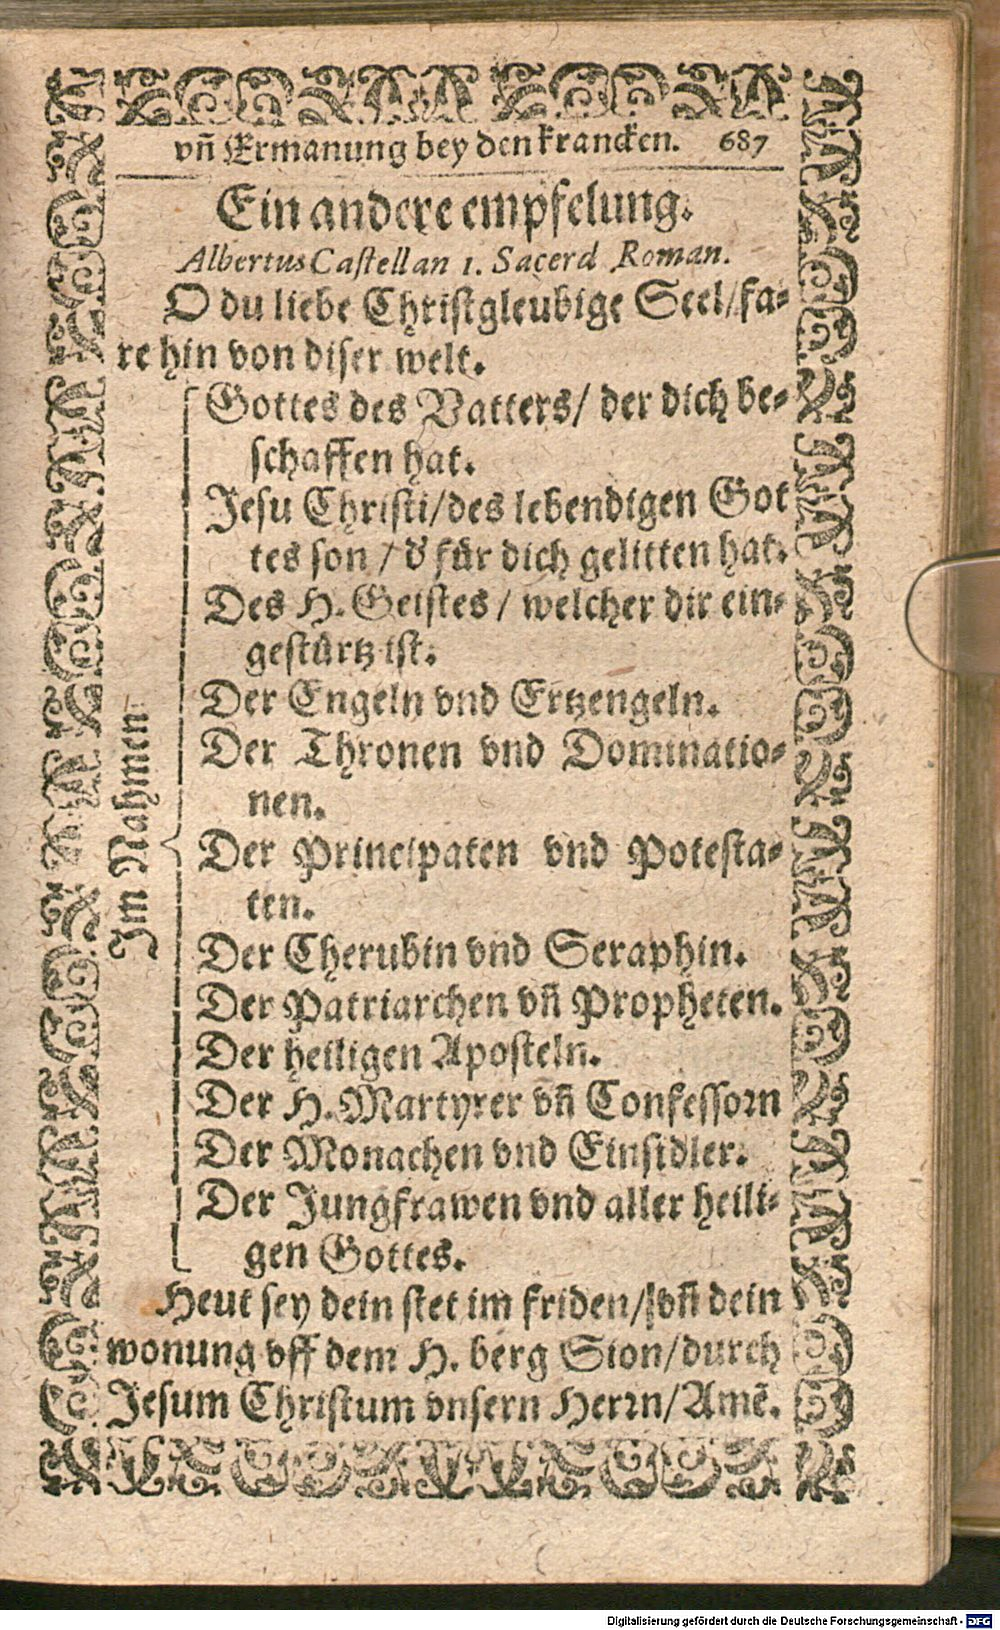 vñ Ermanung bey den krancken. 687
Ein andere empfelung.
Albertus Castellan 1. Sacerd Roman.
O du liebe Christgleubige Seel/fa-
re hin von diser welt.
Im Nahmen
Gottes des Vatters/ der dich be-
schaffen hat.
Jesu Christi/des lebendigen Got
tes son / d' für dich gelitten hat.
Des H. Geistes / welcher dir ein-
gestürtz ist.
Der Engeln vnd Ertzengeln.
Der Thronen vnd Dominatio-
nen.
Der Principaten vnd Potesta-
ten.
Der Cherubin vnd Seraphin.
Der Patriarchen vñ Propheten.
Der heiligen Aposteln.
Der H. Martyrer vñ Confessorn
Der Monachen vnd Einsidler.
Der Jungfrawen vnd aller heili-
gen Gottes.
Heut sey dein stet im friden/ vñ dein
wonung vff dem H. berg Sion/durch
Jesum Christum vnsern Herrn/Amẽ.
Digitalisierung gefördert durch die Deutsche Forschungsgemeinschaft - DFG